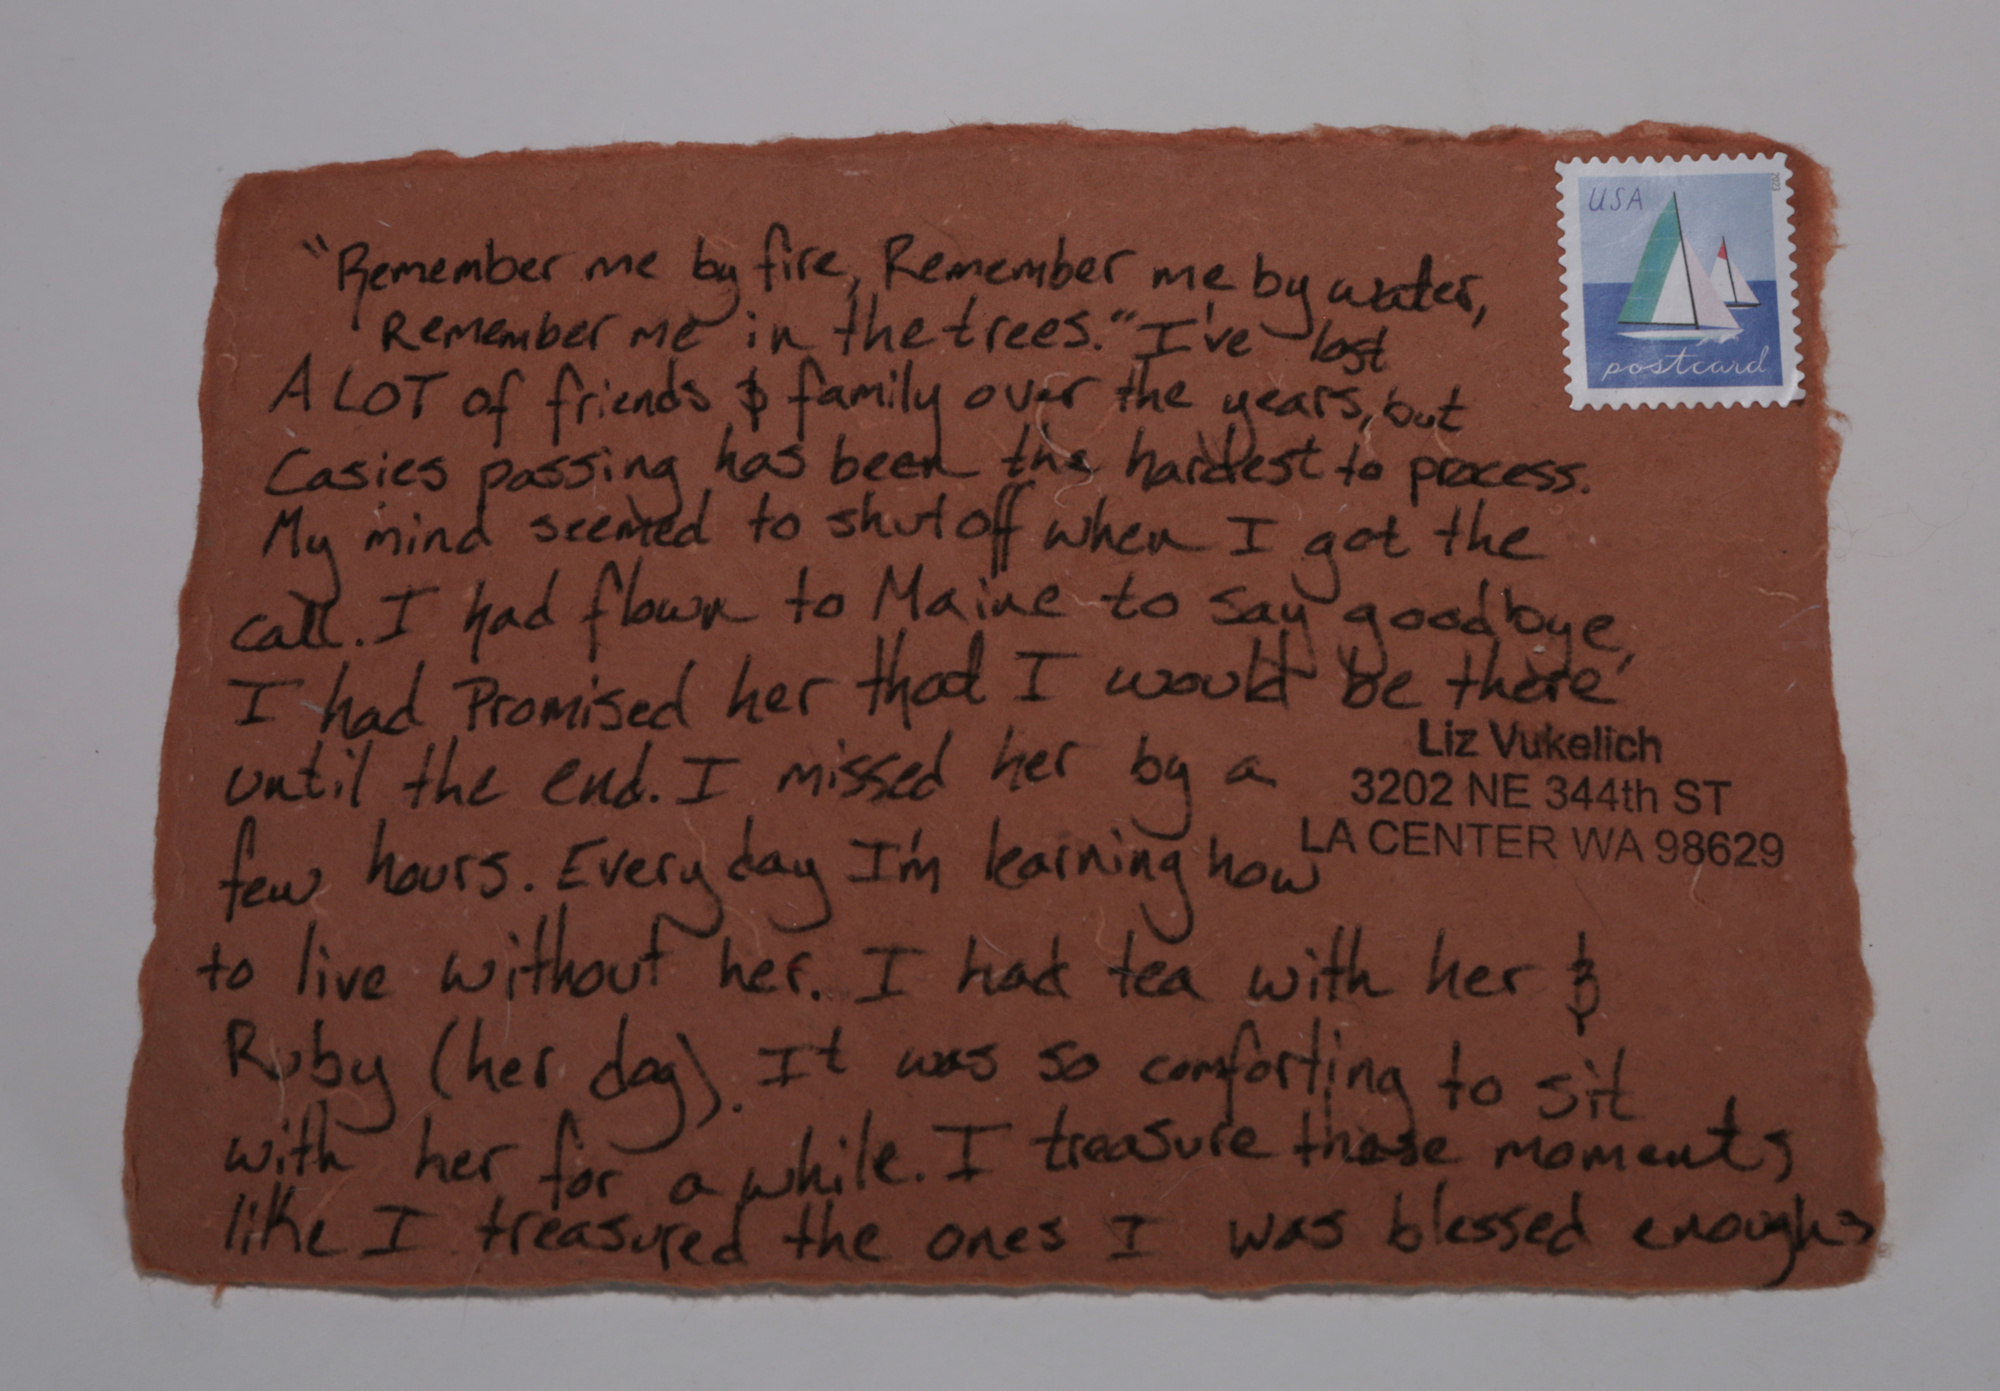 "Remember me by fire, Remember me by water,
Remember me in the trees." I've lost
A LOT of friends & family over the years, but
Casies passing has been the hardest to process.
My mind seemed to shut off when I got the
call. I had flown to Maine to say goodbye,
I had Promised her that I would be there
until the end. I missed her by a
few hours. Every day I'm learning how
to live without her. I had tea with her &
Ruby (her dog). It was so comforting to sit
with her for a while. I treasure those moments
like I treasured the ones I was blessed enough
USA
2023
postcard
Liz Vukelich
3202 NE 344th ST
LA CENTER WA 98629